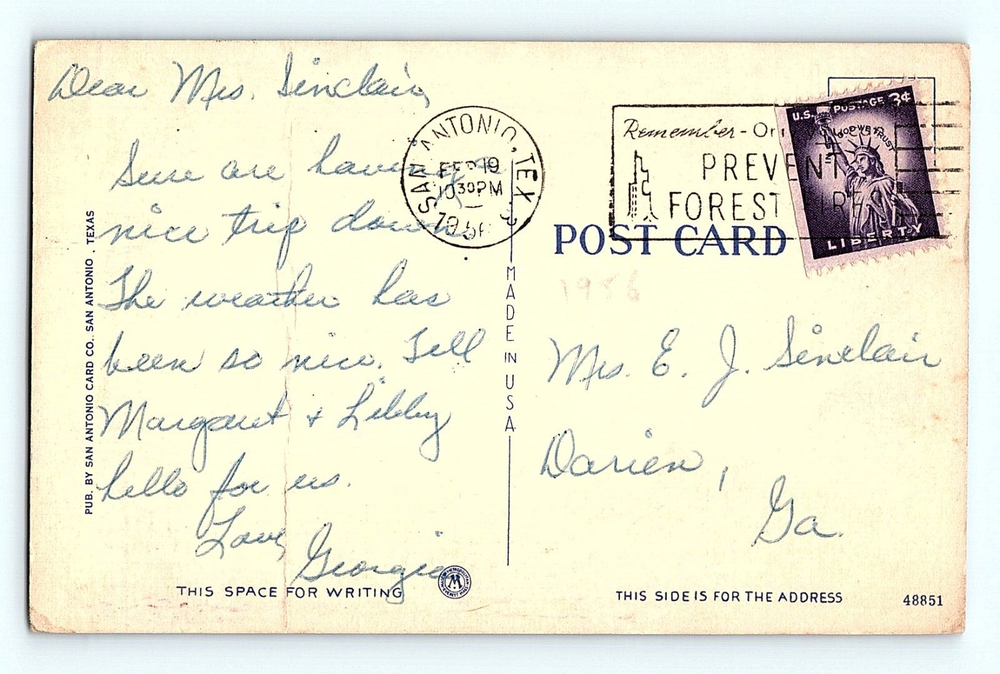 Dear Mrs. Sinclair,
Sure are having a
nice trip down.
The weather has
been so nice. Tell
Margaret & Libby
hello for us.
Love,
Georgie
THIS SPACE FOR WRITING
PUB. BY SAN ANTONIO CARD CO., SAN ANTONIO, TEXAS
MADE IN USA
SAN ANTONIO, TEX. 3
FEB 19
1030PM
1956
Remember - On
PREVENT
FOREST
U.S. POSTAGE 3¢
IN GOD WE TRUST
LIBERTY
POST CARD
1956
Mrs. E. J. Sinclair
Darien,
Ga.
THIS SIDE IS FOR THE ADDRESS
48851